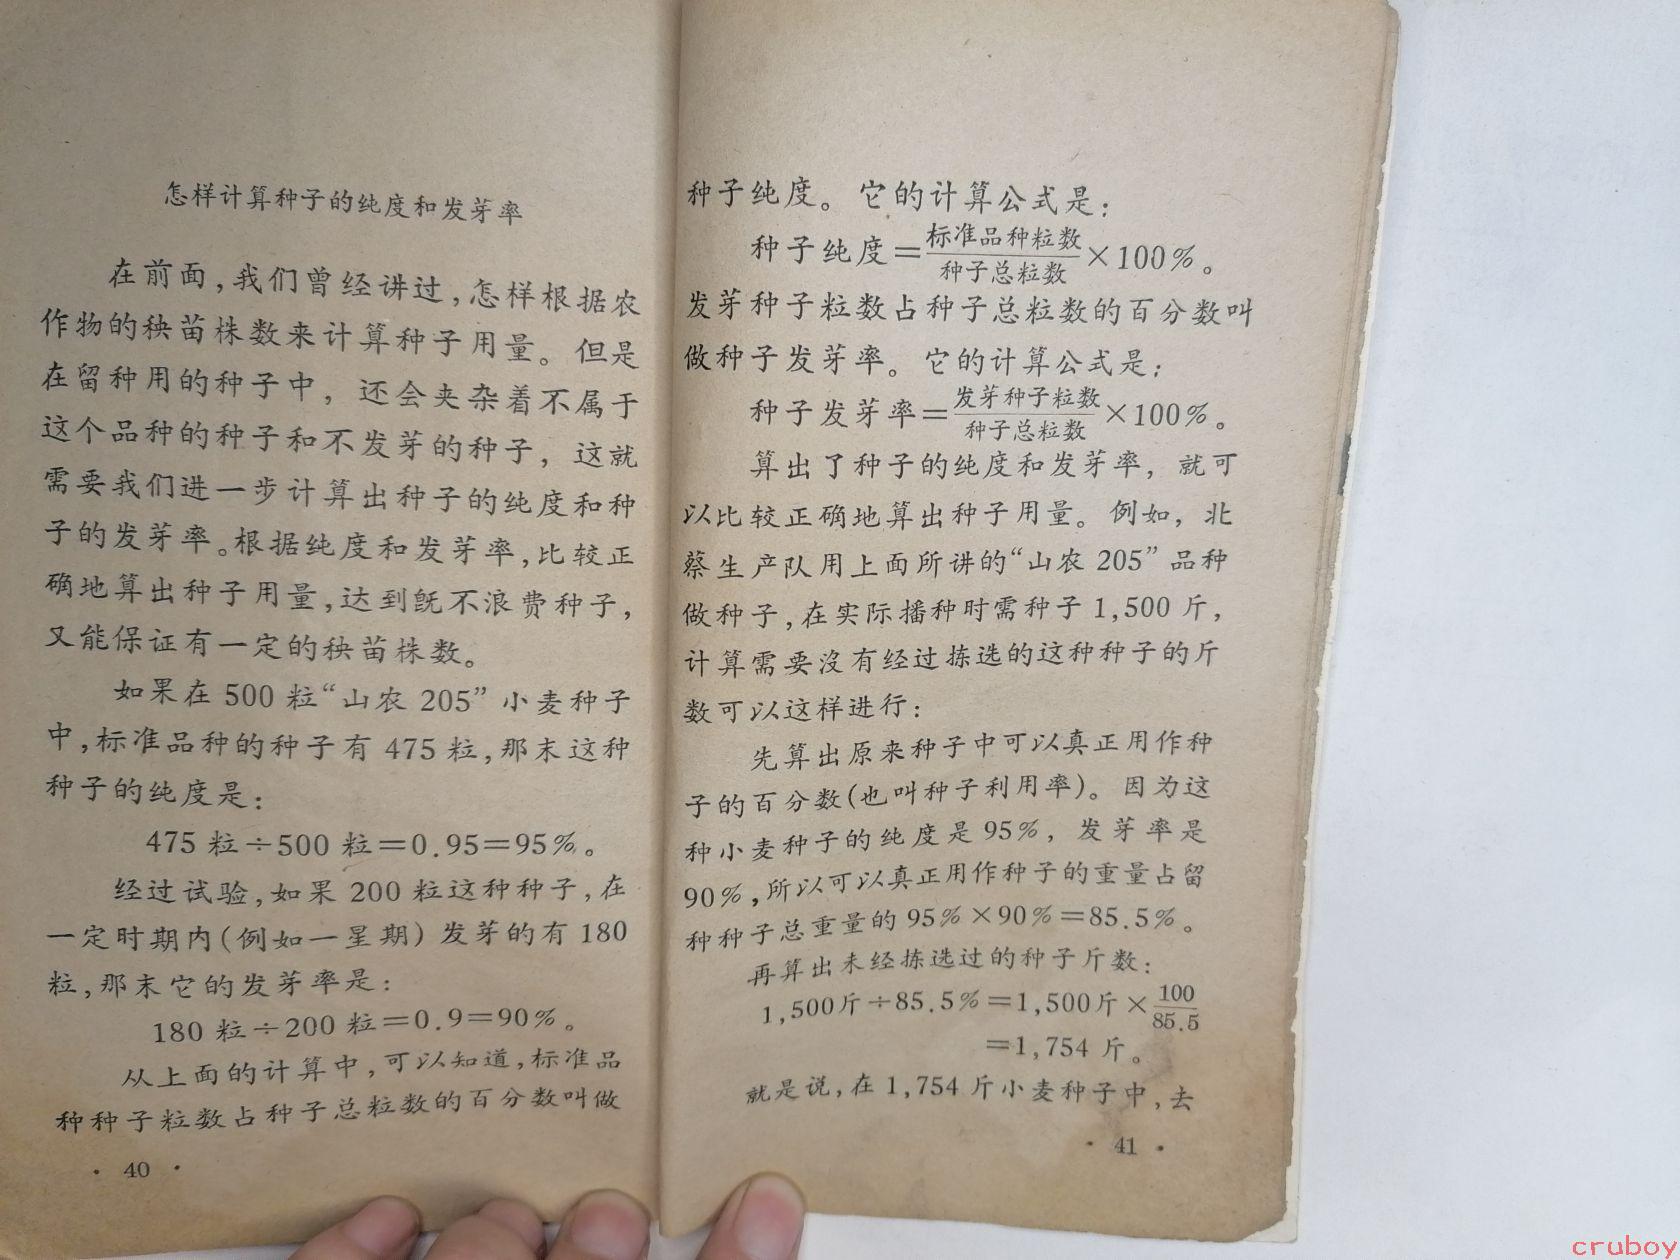 怎样计算种子的纯度和发芽率
在前面,我们曾经讲过,怎样根据农
作物的秧苗株数来计算种子用量。但是
在留种用的种子中,还会夹杂着不属于
这个品种的种子和不发芽的种子,这就
需要我们进一步计算出种子的纯度和种
子的发芽率。根据纯度和发芽率,比较正
确地算出种子用量,达到既不浪费种子,
又能保证有一定的秧苗株数。
如果在500粒“山农205”小麦种子
中,标准品种的种子有475粒,那末这种
种子的纯度是:
475粒÷500粒=0.95=95%。
经过试验,如果200粒这种种子,在
一定时期内(例如一星期)发芽的有180
粒,那末它的发芽率是:
180粒÷200粒=0.9=90%。
从上面的计算中,可以知道,标准品
种种子粒数占种子总粒数的百分数叫做
·40·
种子纯度。它的计算公式是:
种子纯度=标准品种粒数/种子总粒数×100%。
发芽种子粒数占种子总粒数的百分数叫
做种子发芽率。它的计算公式是:
种子发芽率=发芽种子粒数/种子总粒数×100%。
算出了种子的纯度和发芽率,就可
以比较正确地算出种子用量。例如,北
蔡生产队用上面所讲的“山农205”品种
做种子,在实际播种时需种子1,500斤,
计算需要沒有经过拣选的这种种子的斤
数可以这样进行:
先算出原来种子中可以真正用作种
子的百分数(也叫种子利用率)。因为这
种小麦种子的纯度是95%,发芽率是
90%,所以可以真正用作种子的重量占留
种种子总重量的95%×90%=85.5%。
再算出未经拣选过的种子斤数:
1,500斤÷85.5%=1,500斤×100/85.5
=1,754斤。
就是说,在1,754斤小麦种子中,去
·41·
cruboy